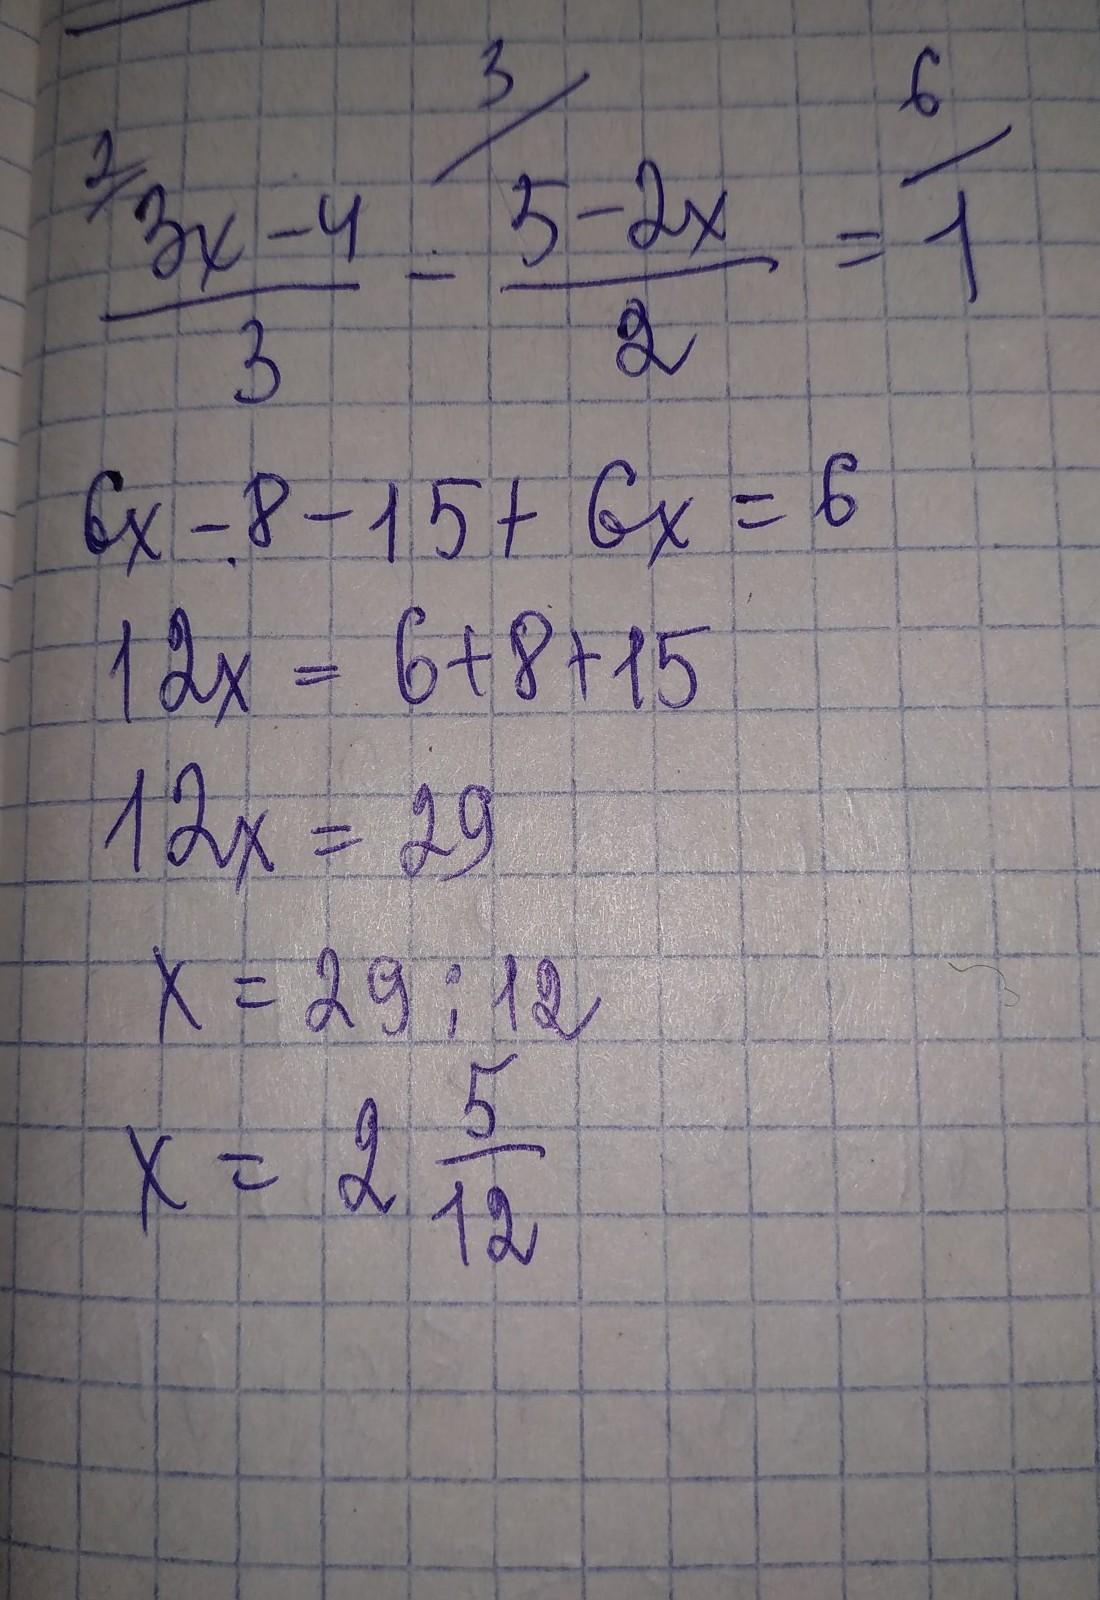 2/ 3x-4/3 - 3/ 5-2x/2 = 6/ 1
6x-8-15+6x=6
12x=6+8+15
12x=29
x=29:12
x=2 5/12